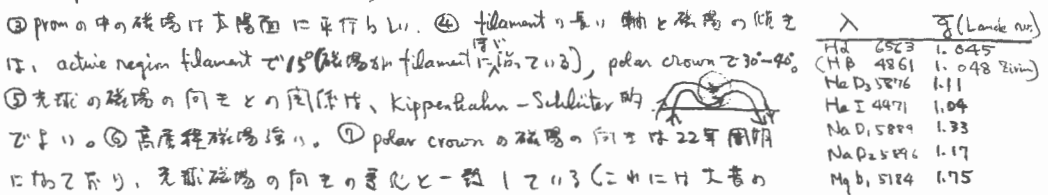 ③ promの中の磁場は太陽面に平行らしい. ④ filamentの長い軸と磁場の傾き
は、active region filament で15°(磁場がfilamentにほぼ沿っている), polar crown で30°~40°。
⑤ 光球の磁場の向きとの関係は、Kippenhahn-Schlüter的
でよい。⑥ 高度程磁場強い。⑦ polar crown の磁場の向きは22年周期
になっており、光球磁場の向きの変化と一致している(これには大昔の
λ g̅ (Lande
Hα 6563 1.045
(Hβ 4861 1.048 Zirin)
He D3 5876 1.11
He I 4471 1.04
Na D1 5889 1.33
Na D2 5896 1.17
Mg b1 5184 1.75